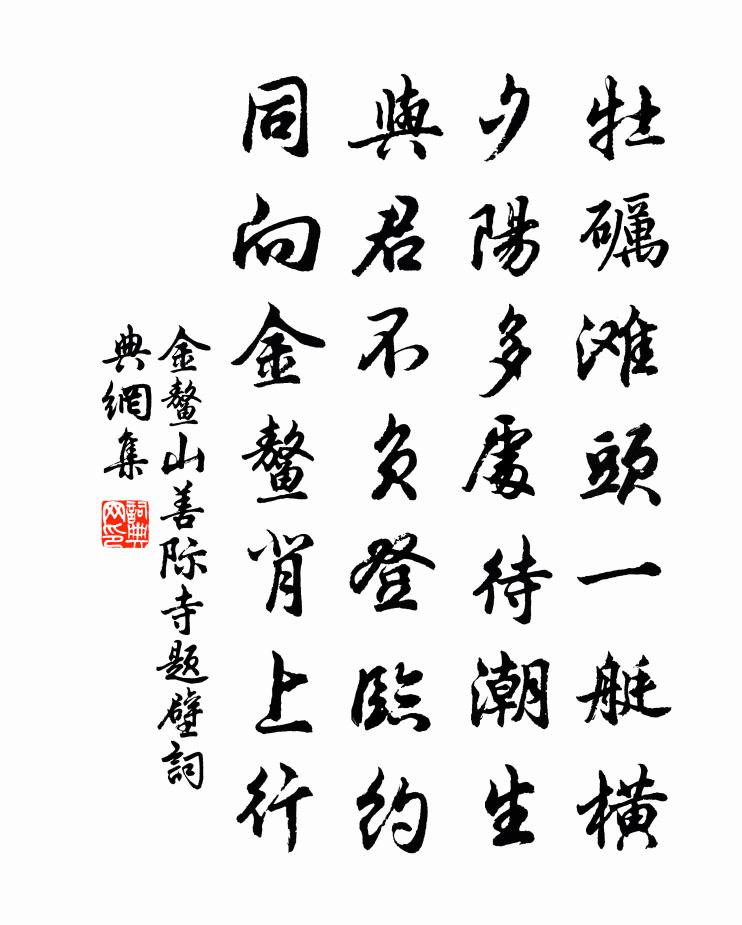 牡礪滩頭一艇横
夕陽多處待潮生
與君不负登臨约
同向金鳌背上行
金鳌山善际寺题壁詞
典網集
詞典
网印